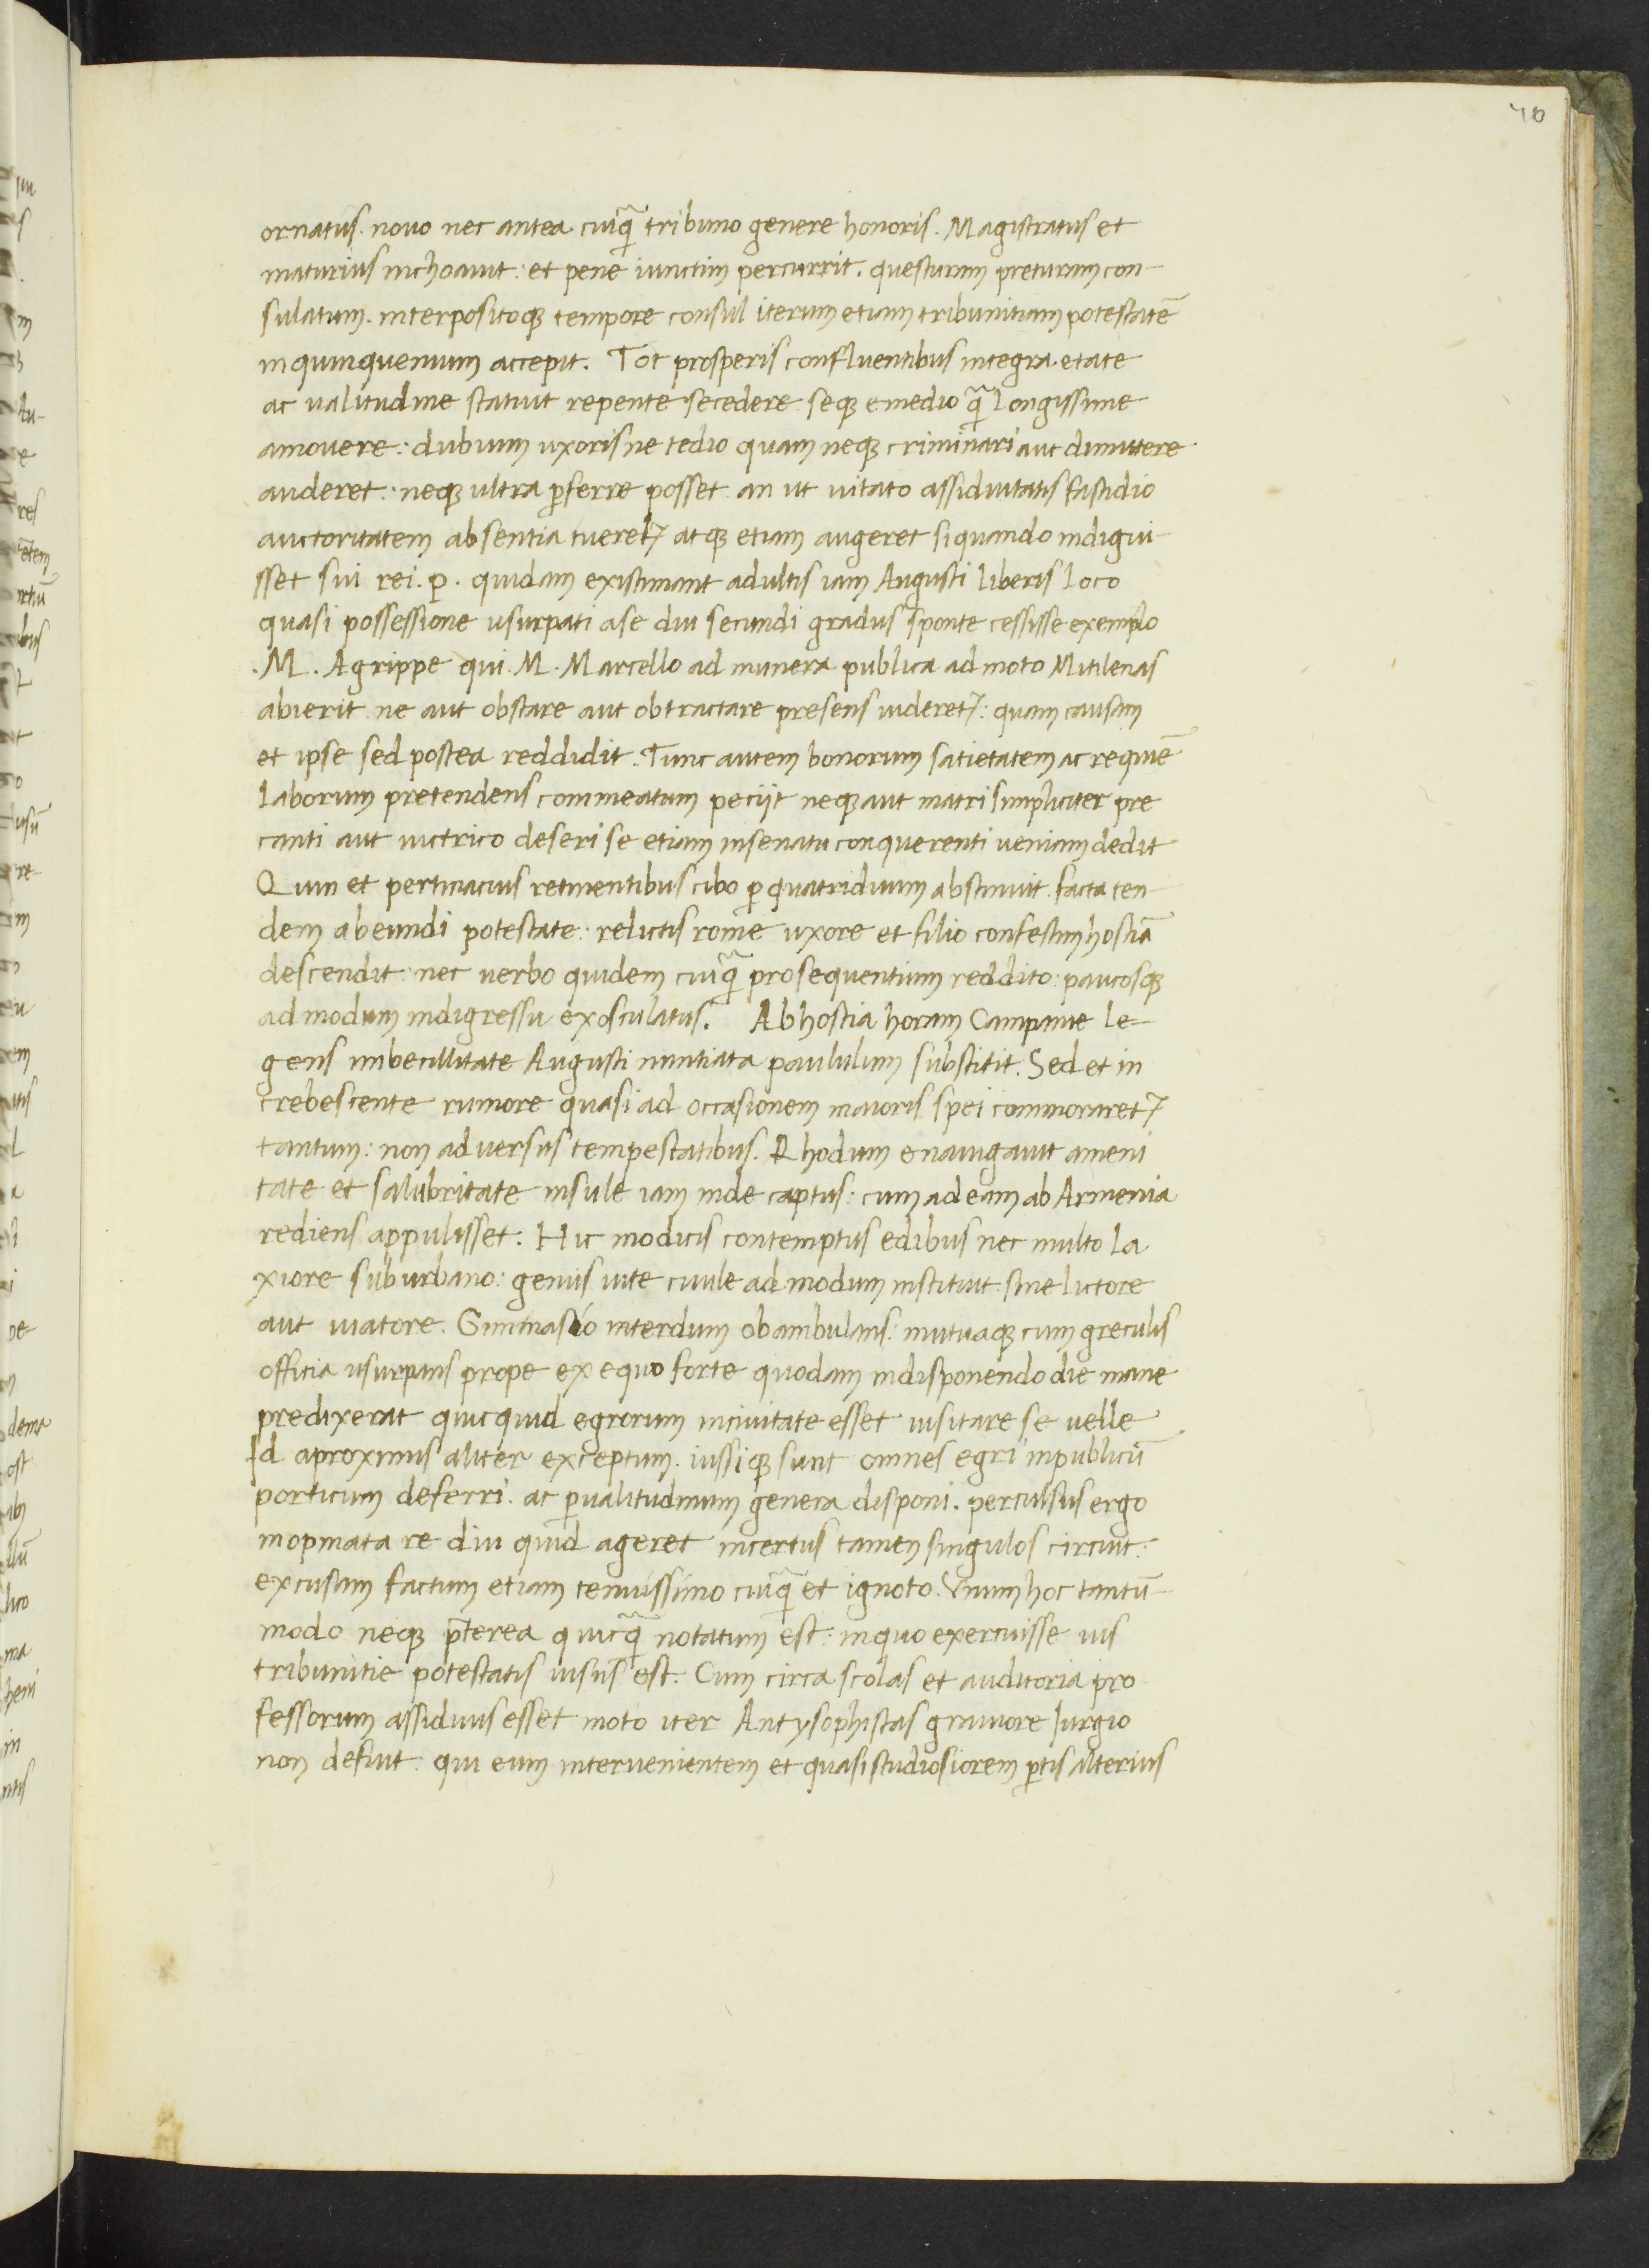 40
ornatus. nouo nec antea cuiq̃ tribuno genere honoris. Magistratus et
maturius inchoauit: et pene iunctim percurrit. questuram preturam con-
sulatum. interpositoqꝫ tempore consul iterum etiam tribunitiam potestatē
in quinquenium accepit. Tot prosperis confluentibus integra etate
ac ualitudine statuit repente secedere seqꝫ e medio q̃ longissime
amouere: dubium uxoris ne tedio quam neqꝫ criminari aut dimittere
auderet: neqꝫ ultra ꝑferre posset an ut uitato assiduitatis fastidio
auctoritatem absentia tueretꝛ atqꝫ etiam augeret si quando indigui-
sset sui rei. p. quidam existimant adultis iam Augusti liberis loco
quasi possessione usurpati a se diu secundi gradus sponte cessisse exemplo
.M. Agrippe qui M. Marcello ad munera publica ad moto Mitilenas
abierit ne aut obstare aut obtractare presens uideretꝛ: quam causam
et ipse sed postea reddidit. Tunc autem bonorum satietatem ac requiē
laborum pretendens commeatum peciit neqꝫ aut matri simpliciter pre
canti aut uictrico deseri se etiam in senatu conquerenti ueniam dedit
Quin et pertinacius retinentibus cibo ꝑ quatriduum abstinuit. facta ten-
dem abeundi potestate: relictis rome uxore et filio confestim hostiā
descendit: nec uerbo quidem cuiq̃ prosequentium reddito: paucosqꝫ
ad modum in digressu exosculatus. Ab hostia horam Campanie le-
gens imbecillitate Augusti nuntiata paululum substitit. Sed et in
crebescente rumore quasi ad occasionem maioris spei commoraretꝛ
tantum: non aduersus tempestatibus. Rhodum enauigauit ameni
tate et salubritate insule iam inde captus: cum ad eam ab Armenia
rediens appulisset: Hic modicis contemptus edibus nec multo la
xiore suburbano: genus uite ciuile ad modum instituit: sine lictore
aut uiatore. Gimnasio interdum obambulans: mutuaqꝫ cum greculis
officia usurpans prope ex equo forte quodam in disponendo die mane
predixerat quicquid egrorum in ciuitate esset uisitare se uelle
Id a proximis aliter exceptum. iussiqꝫ sunt omnes egri in publicū
porticum deferri. ac ꝑ ualitudinum genera disponi. perculsus ergo
inopinata re diu quid ageret incertus tamen singulos circuit:
excusans factum etiam tenuissimo cuiq̃ et ignoto. Vnum hoc tantū-
modo neqꝫ p̄terea quicq̃ notatum est: in quo exercuisse ius
tribunitie potestatis uisus est: Cum circa scolas et auditoria pro
fessorum assiduus esset moto iter Antysophistas grauiore Iurgio
non defuit: qui eum interuenientem et quasi studiosiorem ꝑtis alterius